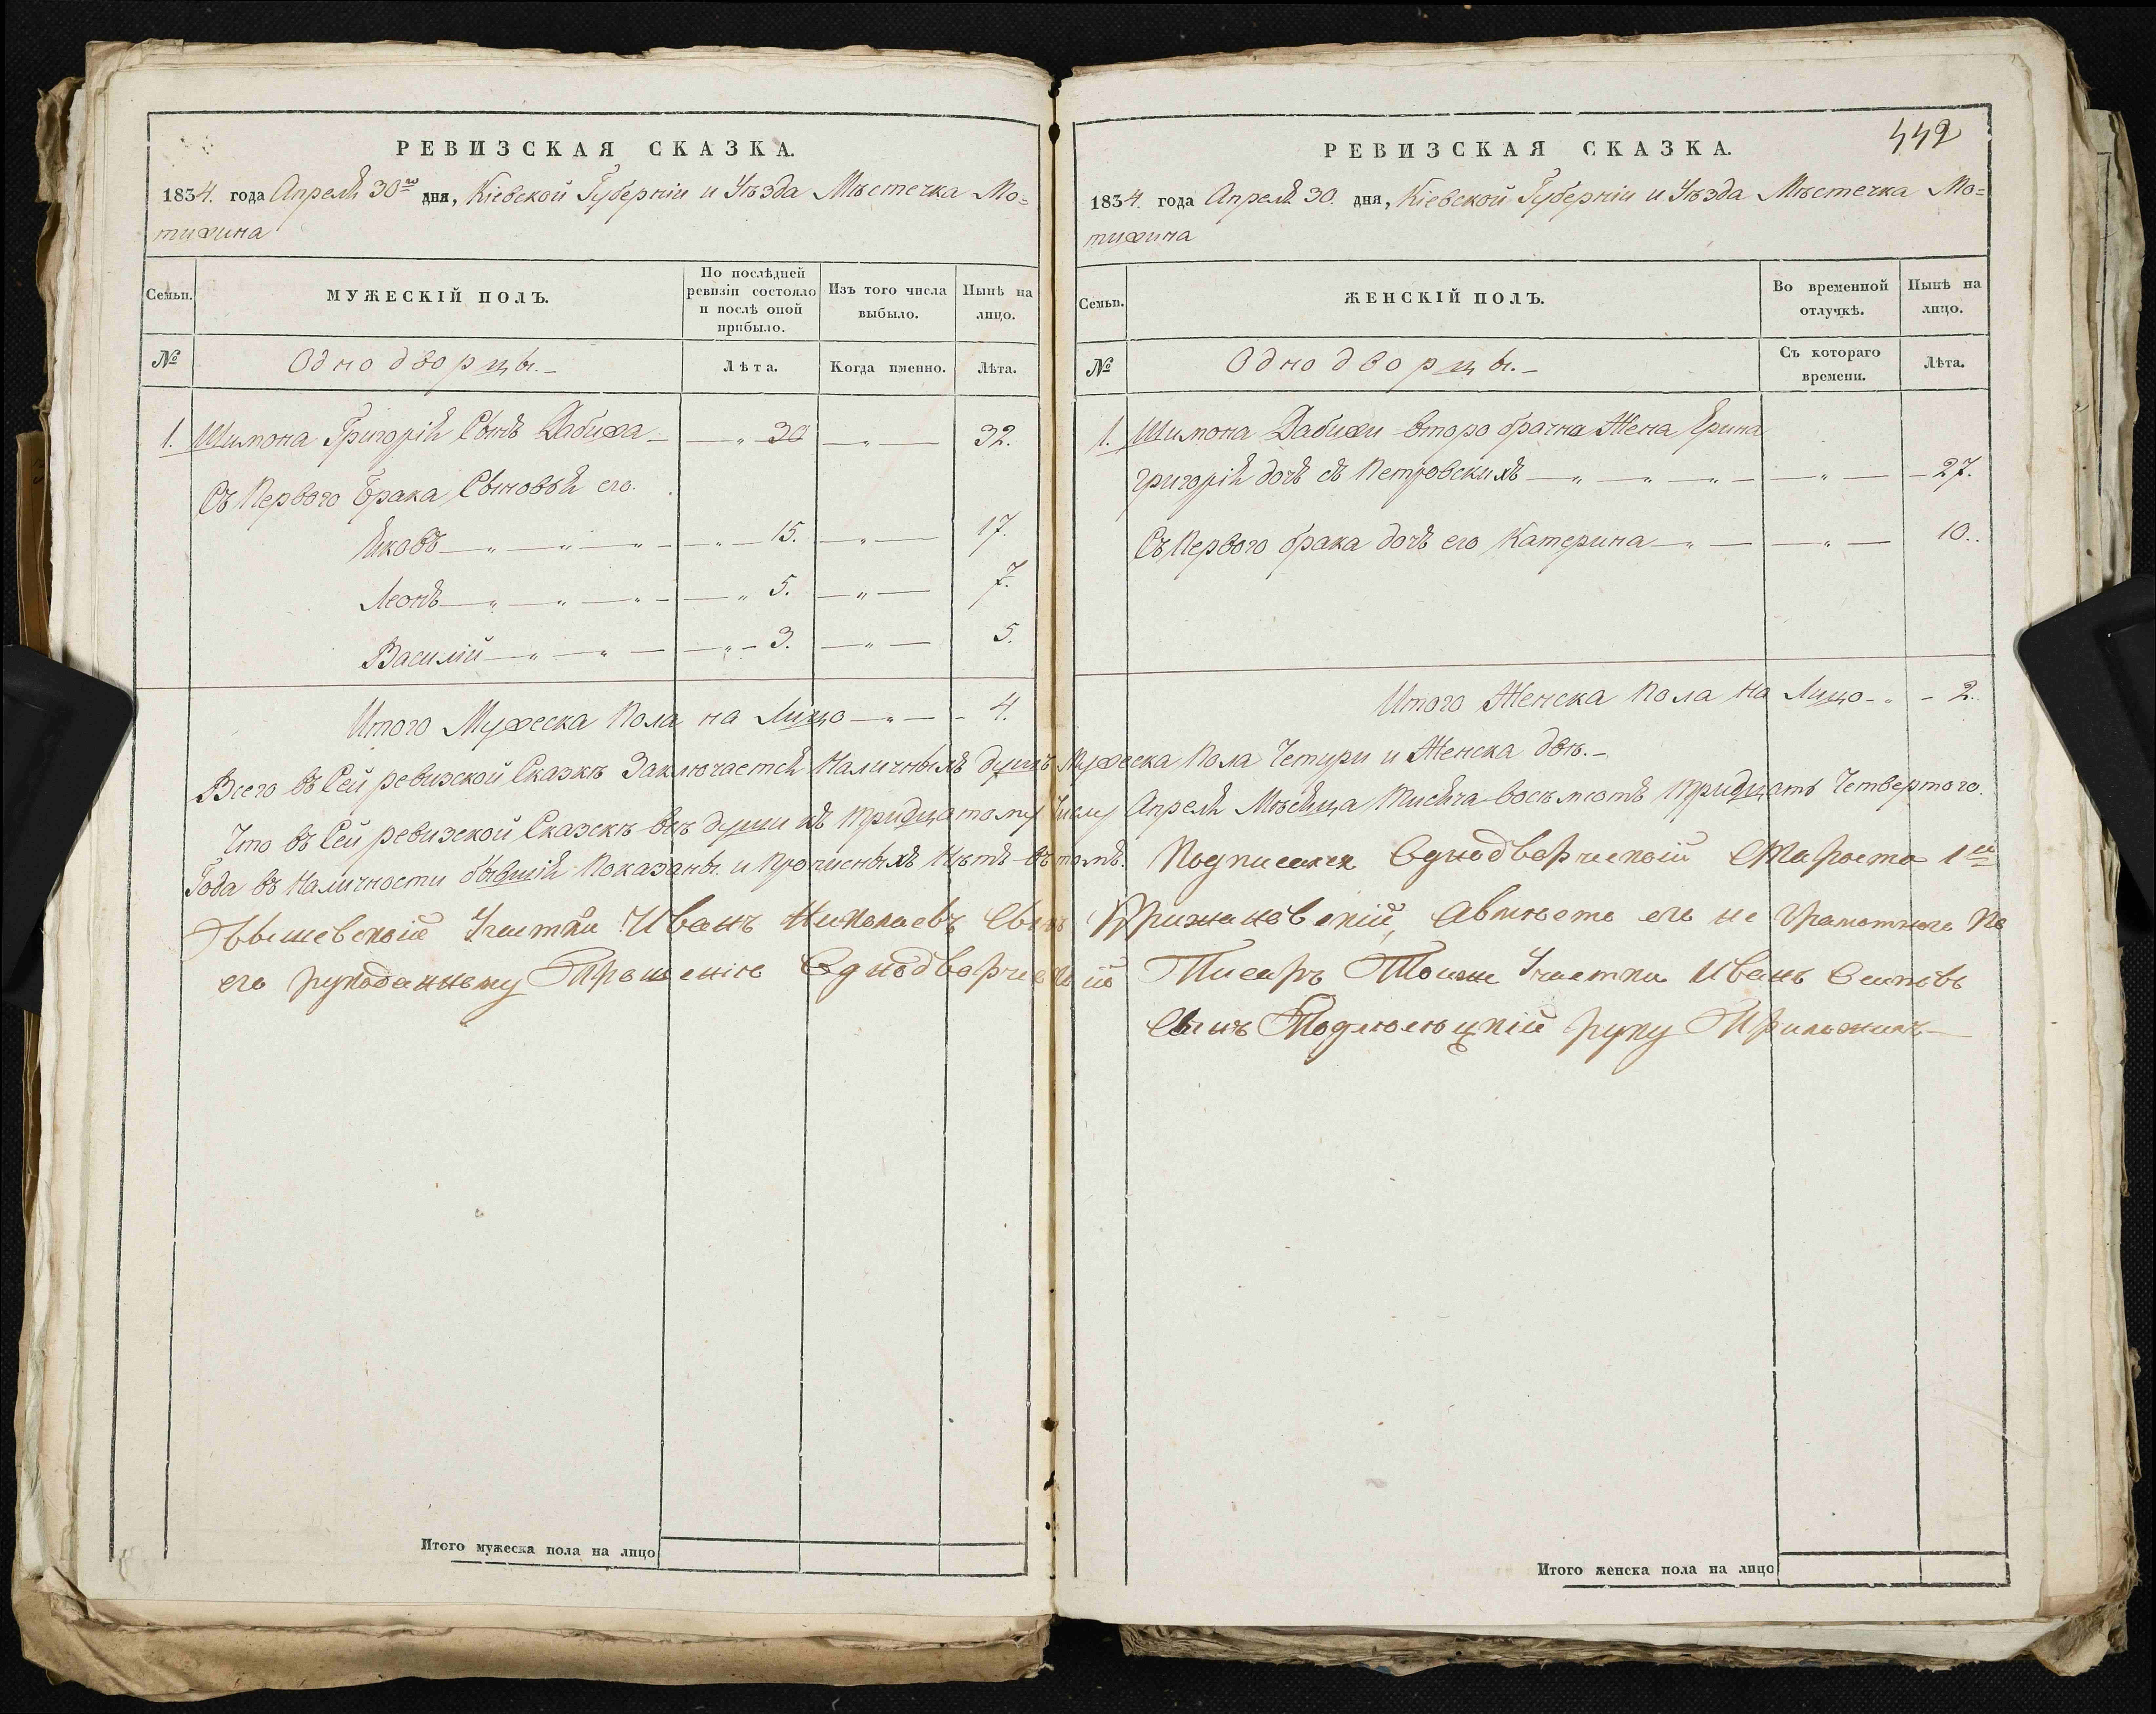 РЕВИЗСКАЯ СКАЗКА.
1834. года Апреля 30го дня, Кіевской Губерніи и Уѣзда Мѣстечка Мо=
тижина
Семьи.
МУЖЕСКІЙ ПОЛЪ.
По послѣдней ревизіи состояло и послѣ оной прибыло.
Изъ того числа выбыло.
Нынѣ на лицо.
№
Однодворцы.-
Лѣта.
Когда именно.
Лѣта.
1. Шимона Григорія Сынъ Дабижа — 30 — 32.
Съ Первого Брака Сыновья его.
Яковъ — 15. — 17.
Леонъ — 5. — 7.
Василій — 3. — 5.
Итого Мужеска Пола на Лицо — 4.
442
РЕВИЗСКАЯ СКАЗКА.
1834. года Апреля 30. дня, Кіевской Губерніи и Уѣзда Мѣстечка Мо=
тижина
Семьи.
ЖЕНСКІЙ ПОЛЪ.
Во временной отлучкѣ.
Нынѣ на лицо.
№
Однодворцы.-
Съ котораго времени.
Лѣта.
1. Шимона Дабижи второ брачна Жена Ярина
Григорія дочь съ Петровскихъ — 27.
Съ Первого брака дочь его Катерина — 10.
Итого Женска Пола на Лицо - 2.
Всего въ Сей ревизской Сказкѣ Заключается Наличныхъ душъ Мужеска Пола Четыри и Женска двѣ.-
Что въ Сей ревизской Сказскѣ всѣ души къ тридцатому Числу Апреля Мѣсяца тисяча восъмсотъ тридцать Четвертого.
Года въ Наличности бывшія Показаны и прописныхъ Нѣтъ въ томъ. Подписался Однодворческой Староста 1й
Участки Иванъ Николаевъ Сынъ его не Грамотного По
его рукоданному Прошенію Однодворческой Писаръ Тойже Участки Иванъ
Сынъ руку Приложилъ
Итого мужеска пола на лицо
Итого женска пола на лицо